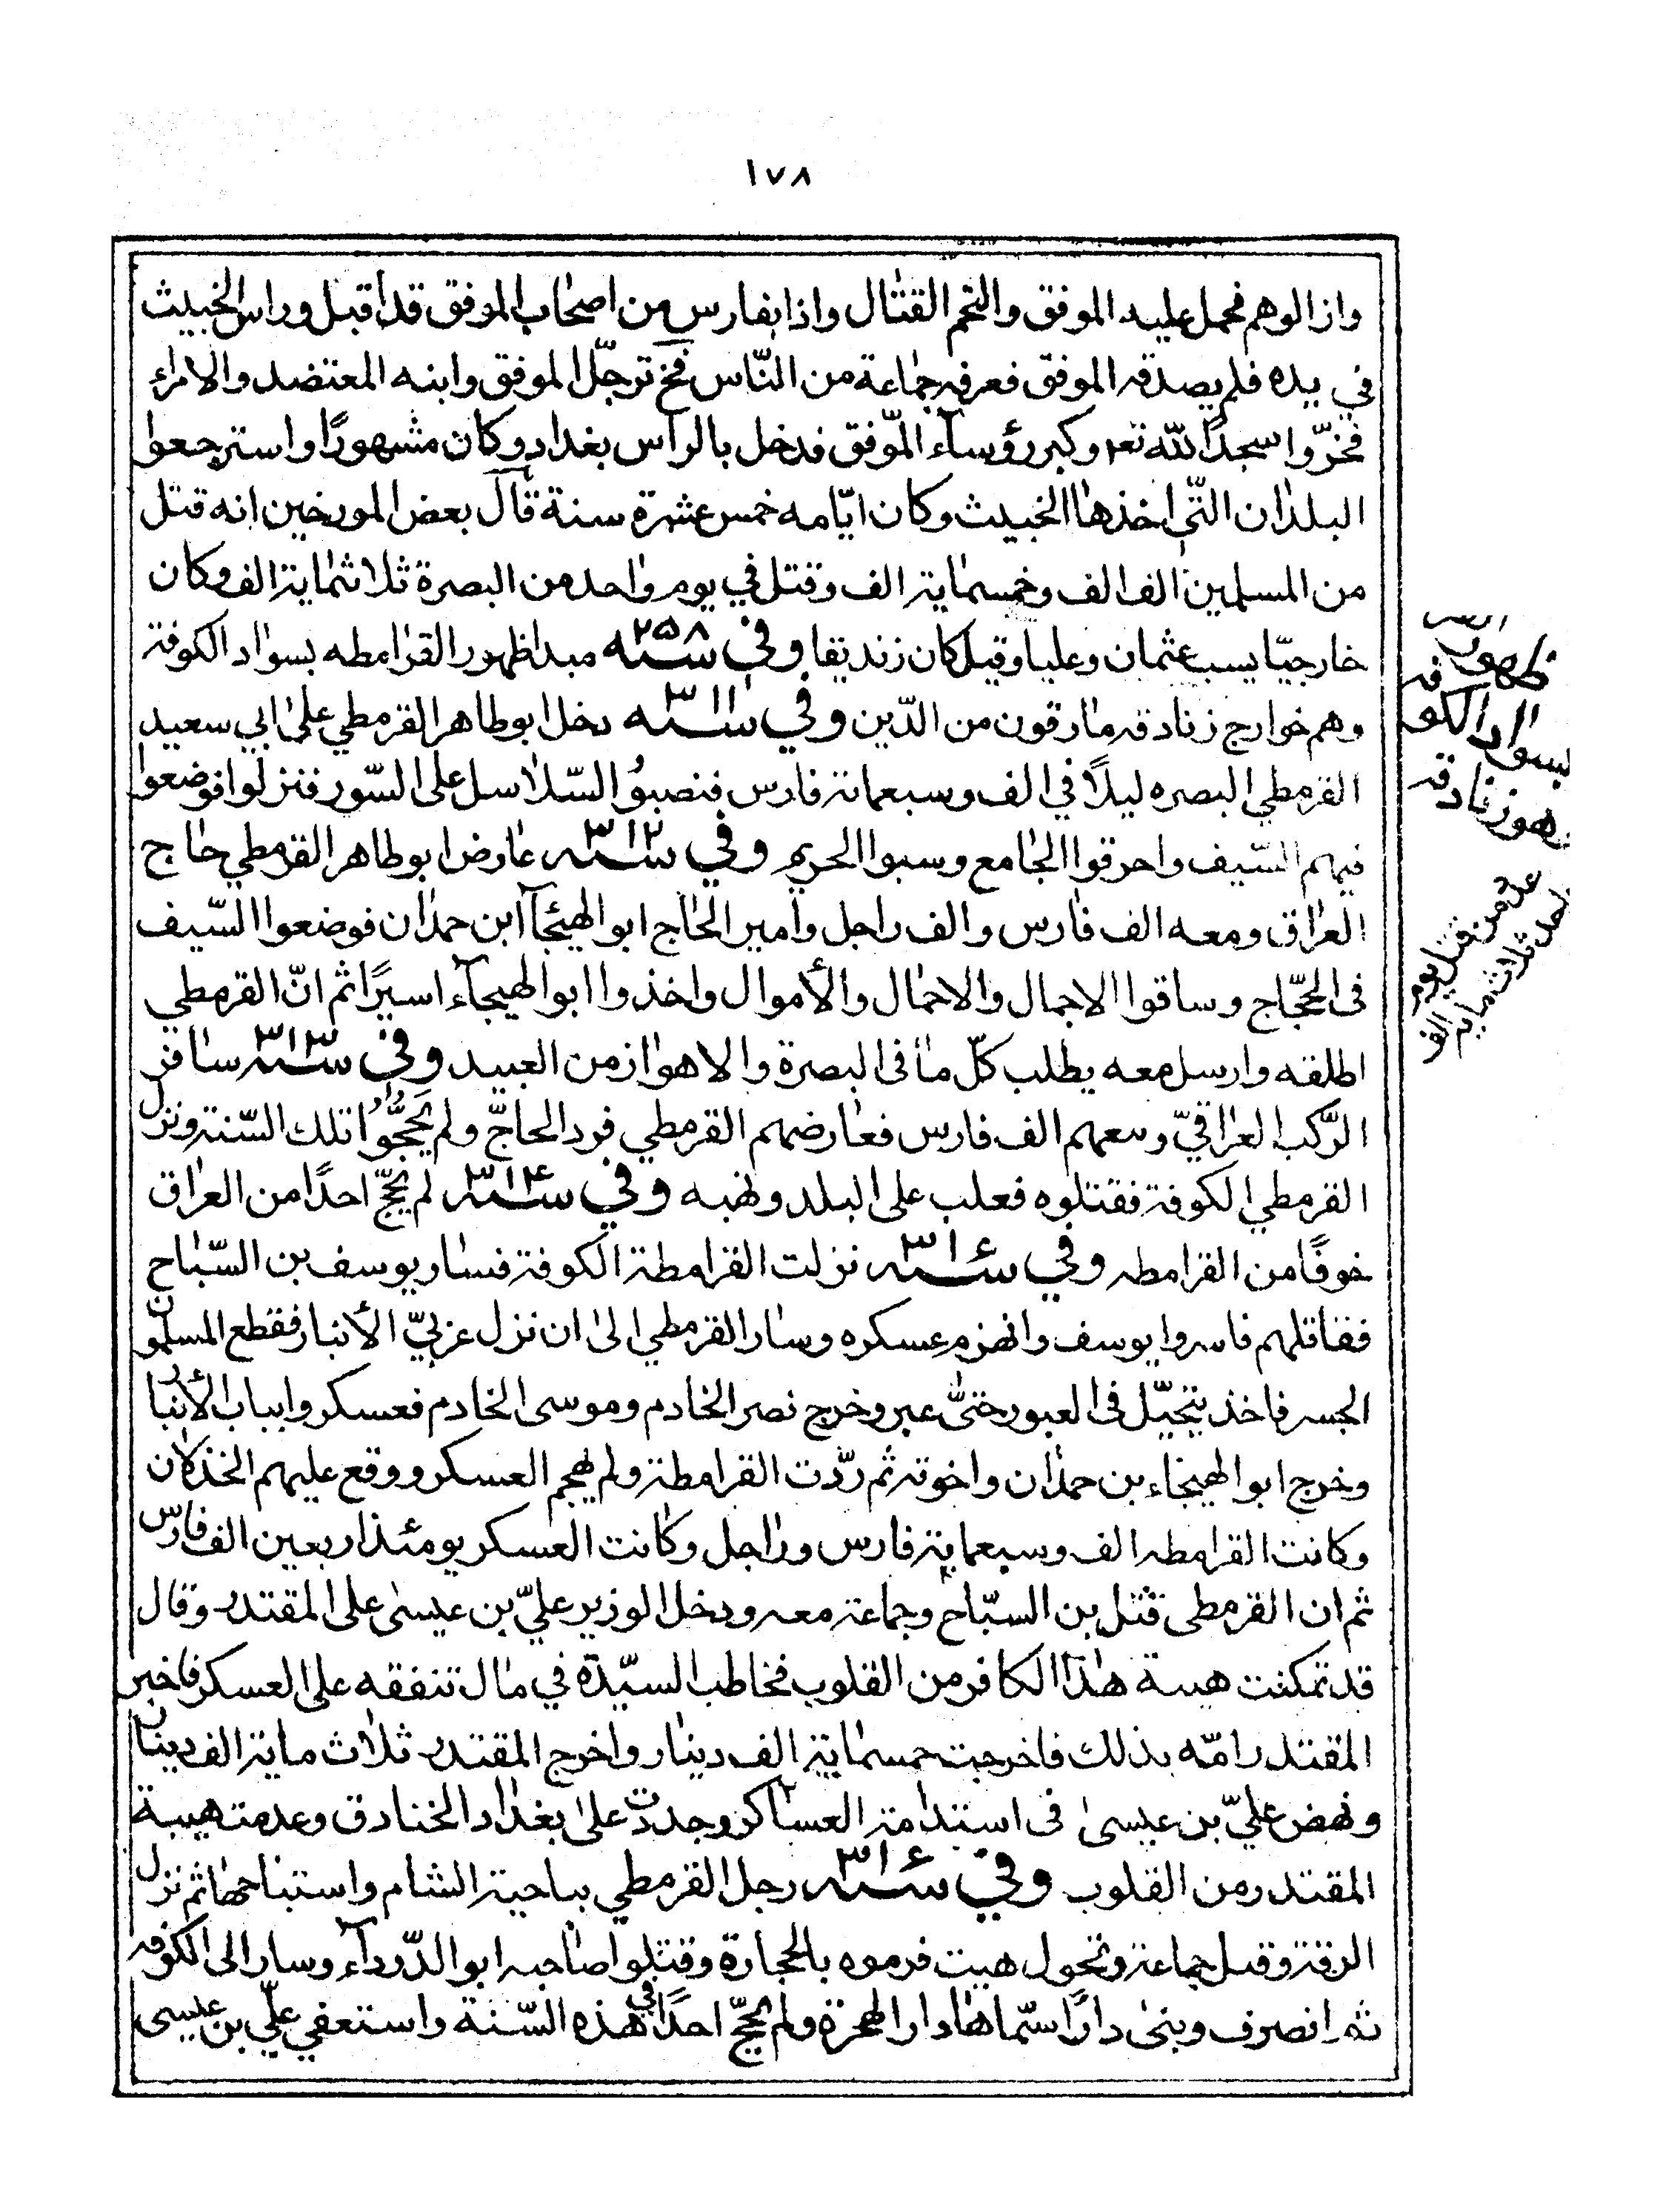 ١٧٨
وازالوهم فحمل عليه الموفق والتحم القتال واذا بفارس من اصحاب الموفق قد اقبل وراس الخبيث
في يده فلم يصدقه الموفق فعرفه جماعة من النّاس فخ ترجّل الموفق وابنه المعتضد والامراء
فخرّوا سجدًا لله تعه وكبر رؤساء الموّفق فدخل بالرأس بغداد وكان مشهورًا واسترجعوا
البلدان التّي اخذها الخبيث وكان ايّامه خمس عشرة سنة قال بعض المورخين انه قتل
من المسلمين الف الف وخمسماية الف وقتل في يوم واحد من البصرة ثلاثماية الف وكان
خارجيّا يسب عثمان وعليا وقيل كان زنديقا وفي سنه ٢٥٨ مبدا ظهور القرامطه بسواد الكوفة
وهم خوارج زنادقه مارقون من الدّين وفي سنه ٣١١ دخل ابو طاهر القرمطي على ابي سعيد
القرمطي البصره ليلاً في الف وسبعماية فارس فنصبوُا السّلاسل على السّور فنزلوا فوضعوا
فيهم السّيف واحرقوا الجامع وسبوا الحريم وفي سنه ٣١٢ عارض ابو طاهر القرمطي حاج
العراق ومعه الف فارس والف راجل وامير الحاج ابو الهيجآ ابن حمدان فوضعوا السّيف
في الحجّاج وساقوا الاجمال والاحمال والأموال واخذوا ابو الهيجآء اسيرًا ثم انّ القرمطي
اطلقه وارسل معه يطلب كلّ ما في البصرة والاهواز من العبيد وفي سنه ٣١٣ سافر
الرّكب العراقيّ ومعهم الف فارس فعارضهم القرمطي فرد الحاجّ ولم يَحجُّوُا تلك السّنة ونزل
القرمطي الكوفة فقتلوه فعلب على البلد ونهبه وفي سنه ٣١٤ لم يحجّ احدًا من العراق
خوفًا من القرامطه وفي سنه ٣١٤ نزلت القرامطة الكوفة فسار يوسف بن السّباح
فقاتلهم فاسروا يوسف وانهزم عسكره وسار القرمطي الى ان نزل غربيّ الأنبار فقطع المسلمون
الجسر فاخذ يتحيّل في العبور حتىّ عبر وخرج نصر الخادم وموسى الخادم فعسكروا بباب الأنبار
وخرج ابو الهيجاء بن حمدان واخوته ثم ردّت القرامطة ولم يهجم العسكر ووقع عليهم الخذلان
وكانت القرامطه الف وسبعماية فارس وراجل وكانت العسكر يومئذ اربعين الف فارس
ثم ان القرمطى قتل بن السبّاح وجماعة معه ودخل الوزير عليّ بن عيسى على المقتدر وقال
قد تمكنت هيبة هذا الكافر من القلوب فخاطب السيّدة في مال تنفقه على العسكر فاخبر
المقتدر امّه بذلك فاخرجت خمسماية الف دينار واخرج المقتدر ثلاث ماية الف دينار
ونهض عليّ بن عيسى فى استدامة العساكر وجددت على بغداد الخنادق وعدمت هيبة
المقتدر من القلوب وفي سنه ٣١٤ رحل القرمطي بناحية الشام واستباحها ثم نزل
الرقة وقتل جماعة وتحول هيت فرموه بالحجارة وقتلوا صاحبه ابو الدّرداء وسار الى الكوفه
ثم انصرف وبنى دارًا سمّاها دار الهجرة ولم يحجّ احدًا في هذه السّنة واستعفي عليّ بن عيسى
ظهور
بسواد الكوفه
زنادقه
من قتل يوم
ثلاث ماية الف